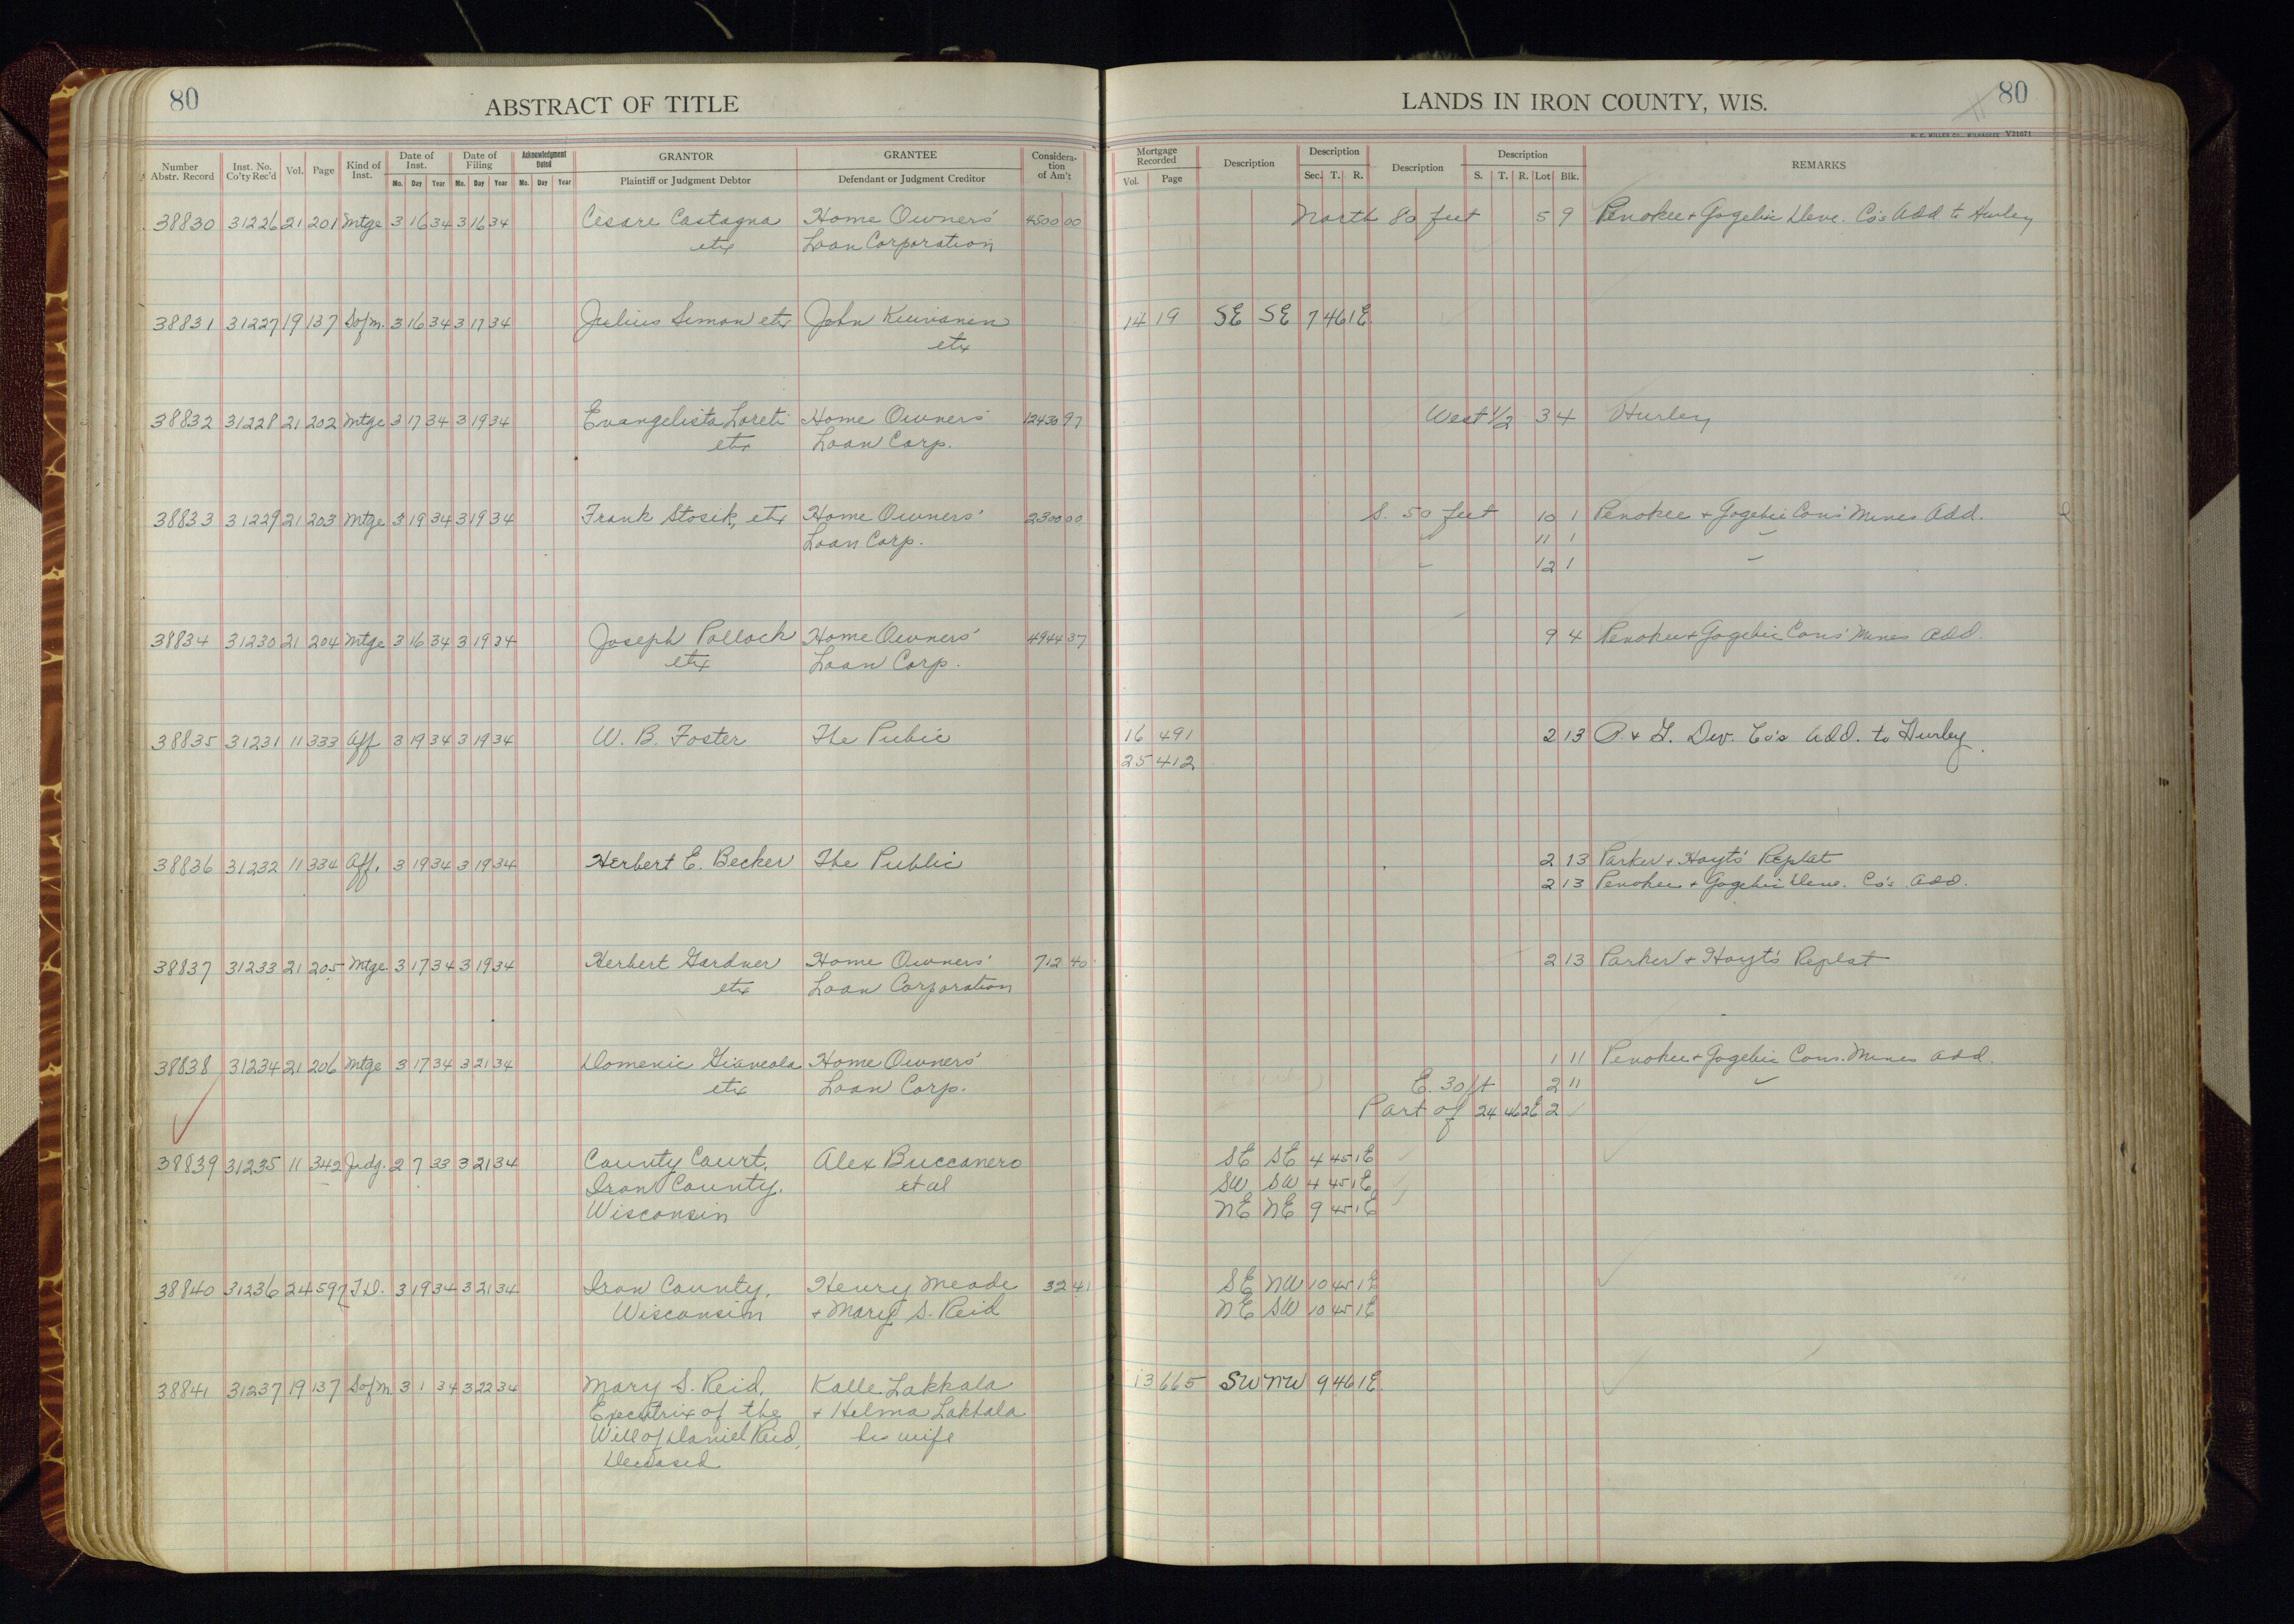 80 ABSTRACT OF TITLE
LANDS IN IRON COUNTY, WIS. 80
H. C. MILLER CO., MILWAUKEE V21071
Number Abstr. Record Inst. No. Co'ty Rec'd Vol. Page Kind of Inst. Date of Inst. Mo. Day Year Date of Filing Mo. Day Year Acknowledgment Dated Mo. Day Year GRANTOR Plaintiff or Judgment Debtor GRANTEE Defendant or Judgment Creditor Considera- tion of Am't
Mortgage Recorded Vol. Page Description Description Sec. T. R. Description Description S. T. R. Lot Blk. REMARKS
38830 31226 21 201 Mtge 3 16 34 3 16 34 Cesare Castagna Home Owners' 4500 00 North 80 feet 5 9 Penokee & Gogebic Deve. Co's Add to Hurley
etux Loan Corporation
38831 31227 19 137 Sofm. 3 16 34 3 17 34 Julius Simon etux John Kuivanen 14 19 SE SE 7 46 1E
etux
38832 31228 21 202 Mtge 3 17 34 3 19 34 Evangelista Loreti Home Owners' 12430 97 West 1/2 3 4 Hurley
etux Loan Corp.
38833 31229 21 203 Mtge 3 19 34 3 19 34 Frank Stosik, etux Home Owners' 2300 00 S. 50 feet 10 1 Penokee & Gogebic Cons' Mines Add.
Loan Corp. " 11 1 "
" 12 1 "
38834 31230 21 204 Mtge 3 16 34 3 19 34 Joseph Pollack Home Owners' 4944 37 9 4 Penokee & Gogebic Cons' Mines Add.
etux Loan Corp.
38835 31231 11 333 Aff 3 19 34 3 19 34 W. B. Foster The Pubic 16 491 2 13 P. & G. Dev. Co's Add. to Hurley.
25 412
38836 31232 11 334 Aff. 3 19 34 3 19 34 Herbert E. Becker The Public 2 13 Parker & Hoyt's Replat
2 13 Penokee & Gogebic Deve. Co's Add.
38837 31233 21 205 Mtge. 3 17 34 3 19 34 Herbert Gardner Home Owners' 712 40 2 13 Parker & Hoyt's Replat
etux Loan Corporation
38838 31234 21 206 Mtge 3 17 34 3 21 34 Domenic Home Owners' 1 11 Penokee & Gogebic Cons. Mines Add.
etux Loan Corp. E. 30 ft 2 11 "
Part of 24 46 2E 2
38839 31235 11 342 Judg. 2 7 33 3 21 34 County Court, Alex Buccanero SE SE 4 45 1E
Iron County, et al SW SW 4 45 1E
Wisconsin NE NE 9 45 1E
38840 31236 24 597 T.D. 3 19 34 3 21 34 Iron County, Henry Meade 32 41 SE NW 10 45 1E
Wisconsin & Mary S. Reid NE SW 10 45 1E
38841 31237 19 137 Sofm 3 1 34 3 22 34 Mary S. Reid, Kalle Lakkala 13 665 SW NW 9 46 1E
Executrix of the & Helma Lakkala
Will of Daniel Reid, his wife
Deceased